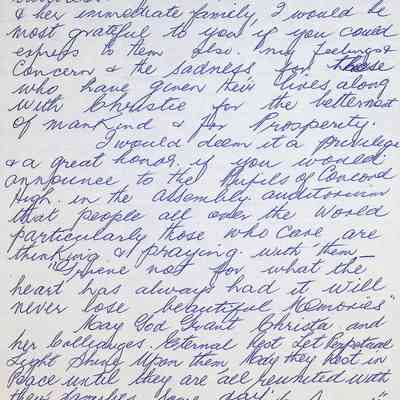 & her immediate family, I would be
most grateful to you if you could
express to them also. my feelings &
Concern & the sadness for those
who have given their lives, along
with Christie for the betterment
of mankind & for Prosperity.
I would deem it a privilege
& a great honor. if you would
announce to the Pupils of Concord
High. in the assembly auditorium
that people all over the World
particularly those who care are
thinking & praying. with them_
"Grieve not for what the
heart has always had it will
never lose beautiful Memories"
May God Grant Christa and
her Colleagues. Eternal Rest Let Perpetual
Light Shine Upon them, May they Rest in
Peace until they are all reunited with
their families some day